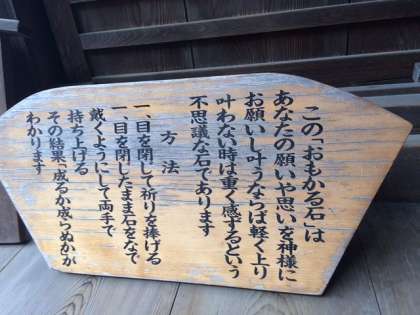 この「おもかる石」は
あなたの願いや思いを神様に
お願いし叶うならば軽く上り
叶わない時は重く感ずるという
不思議な石であります
方法
一、目を閉じて祈りを捧げる
一、目を閉じたまま石をなで
戴くようにして両手で
持ち上げる
その結果「成るか成らぬか」が
わかります